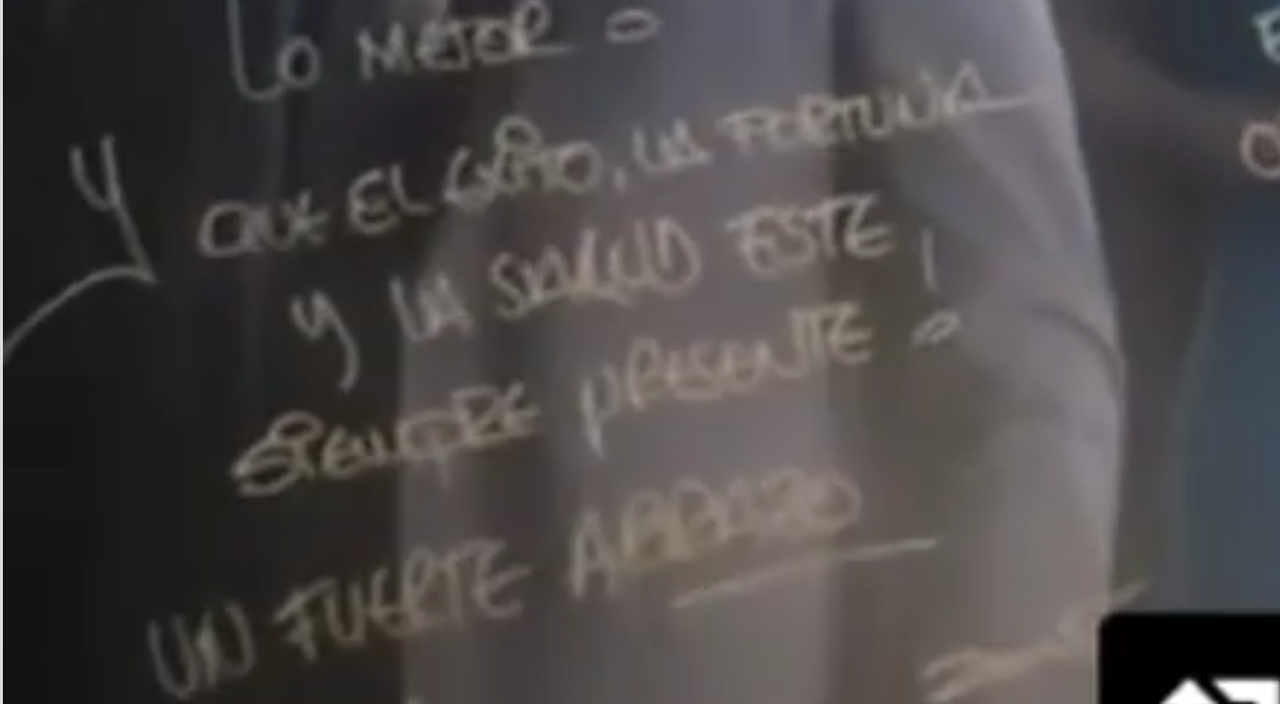 Lo MEJOR
Y QUE EL EXITO, LA FORTUNA
Y LA SALUD ESTE
SIEMPRE PRESENTE
UN FUERTE ABRAZO